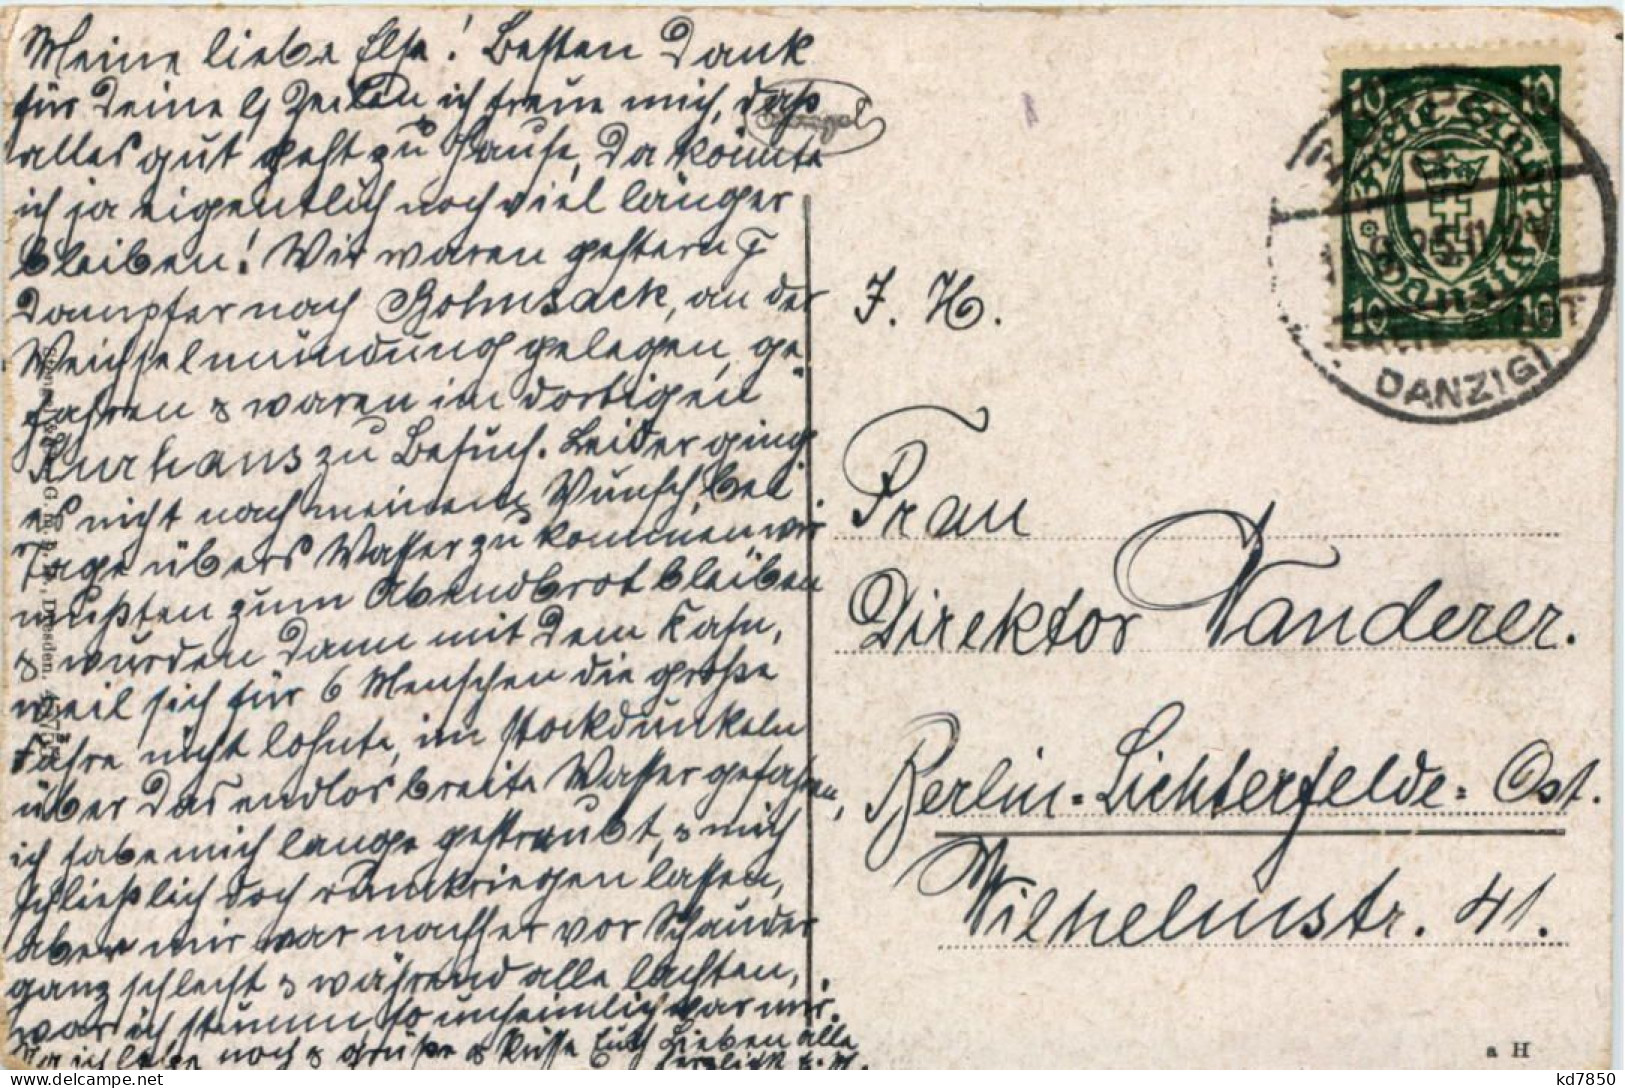 Meine liebe Else! Besten Dank
für Deine lg Zeilen ich freue mich, daß
alles gut geht zu Hause, Da könnte
ich ja eigentlich noch viel länger
bleiben! Wir waren gestern
Dampfer nach Bohnsack, an der
Weichselmündung gelegen, ge
fahren & waren im dortigen
Kurhaus zu Besuch. Leider ging
es nicht nach meinem Wunsch, bei
Tage übers Wasser zu kommen wir
mußten zum Abendbrot bleiben
& wurden dann mit dem Kahn,
weil sich für 6 Menschen die große
Fähre nicht lohnte, im stockdunkeln
über das endlos breite Wasser gefahren,
ich habe mich lange gesträubt, & mich
schließlich doch rankriegen lassen,
aber mir war nachher vor Schauder
ganz schlecht & während alle lachten,
war ich stumm, so unheimlich war mir.
Na ich lebe noch & grüße & küsse Euch Lieben alle
herzlich
Stengel
Dresden
Freie Stadt Danzig
10 10
10 10
9.25.11-12V
DANZIG 1
J. H.
Frau
Direktor Wanderer.
Berlin-Lichterfelde-Ost.
Wilhelmstr. 41.
a H
kd7850